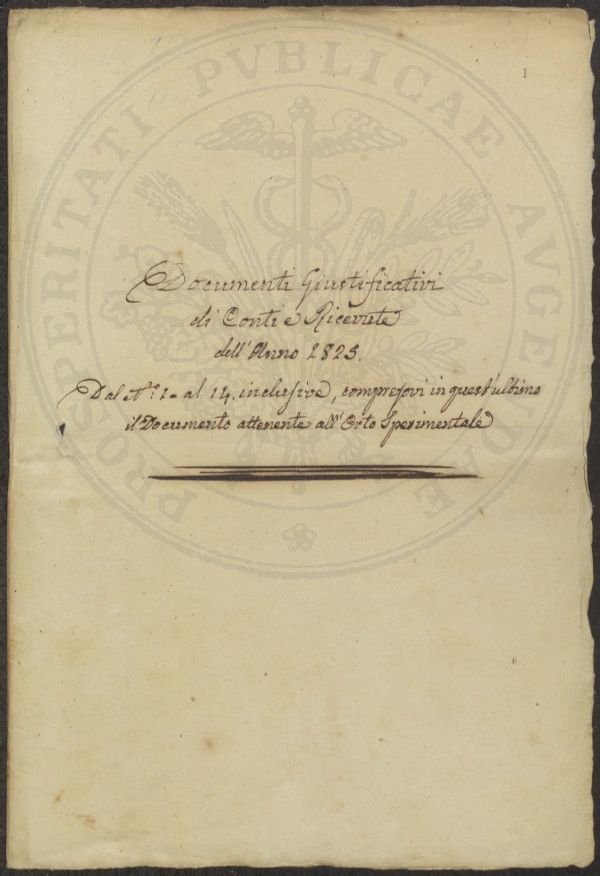 1
PROSPERITATI PVBLICAE AVGENDAE
Documenti Giustificativi
di Conti e Ricevute
dell'Anno 1825.
Dal N.º 1 = al 14. inclusive, compresovi in quest'ultimo
il Documento attenente all'Orto Sperimentale